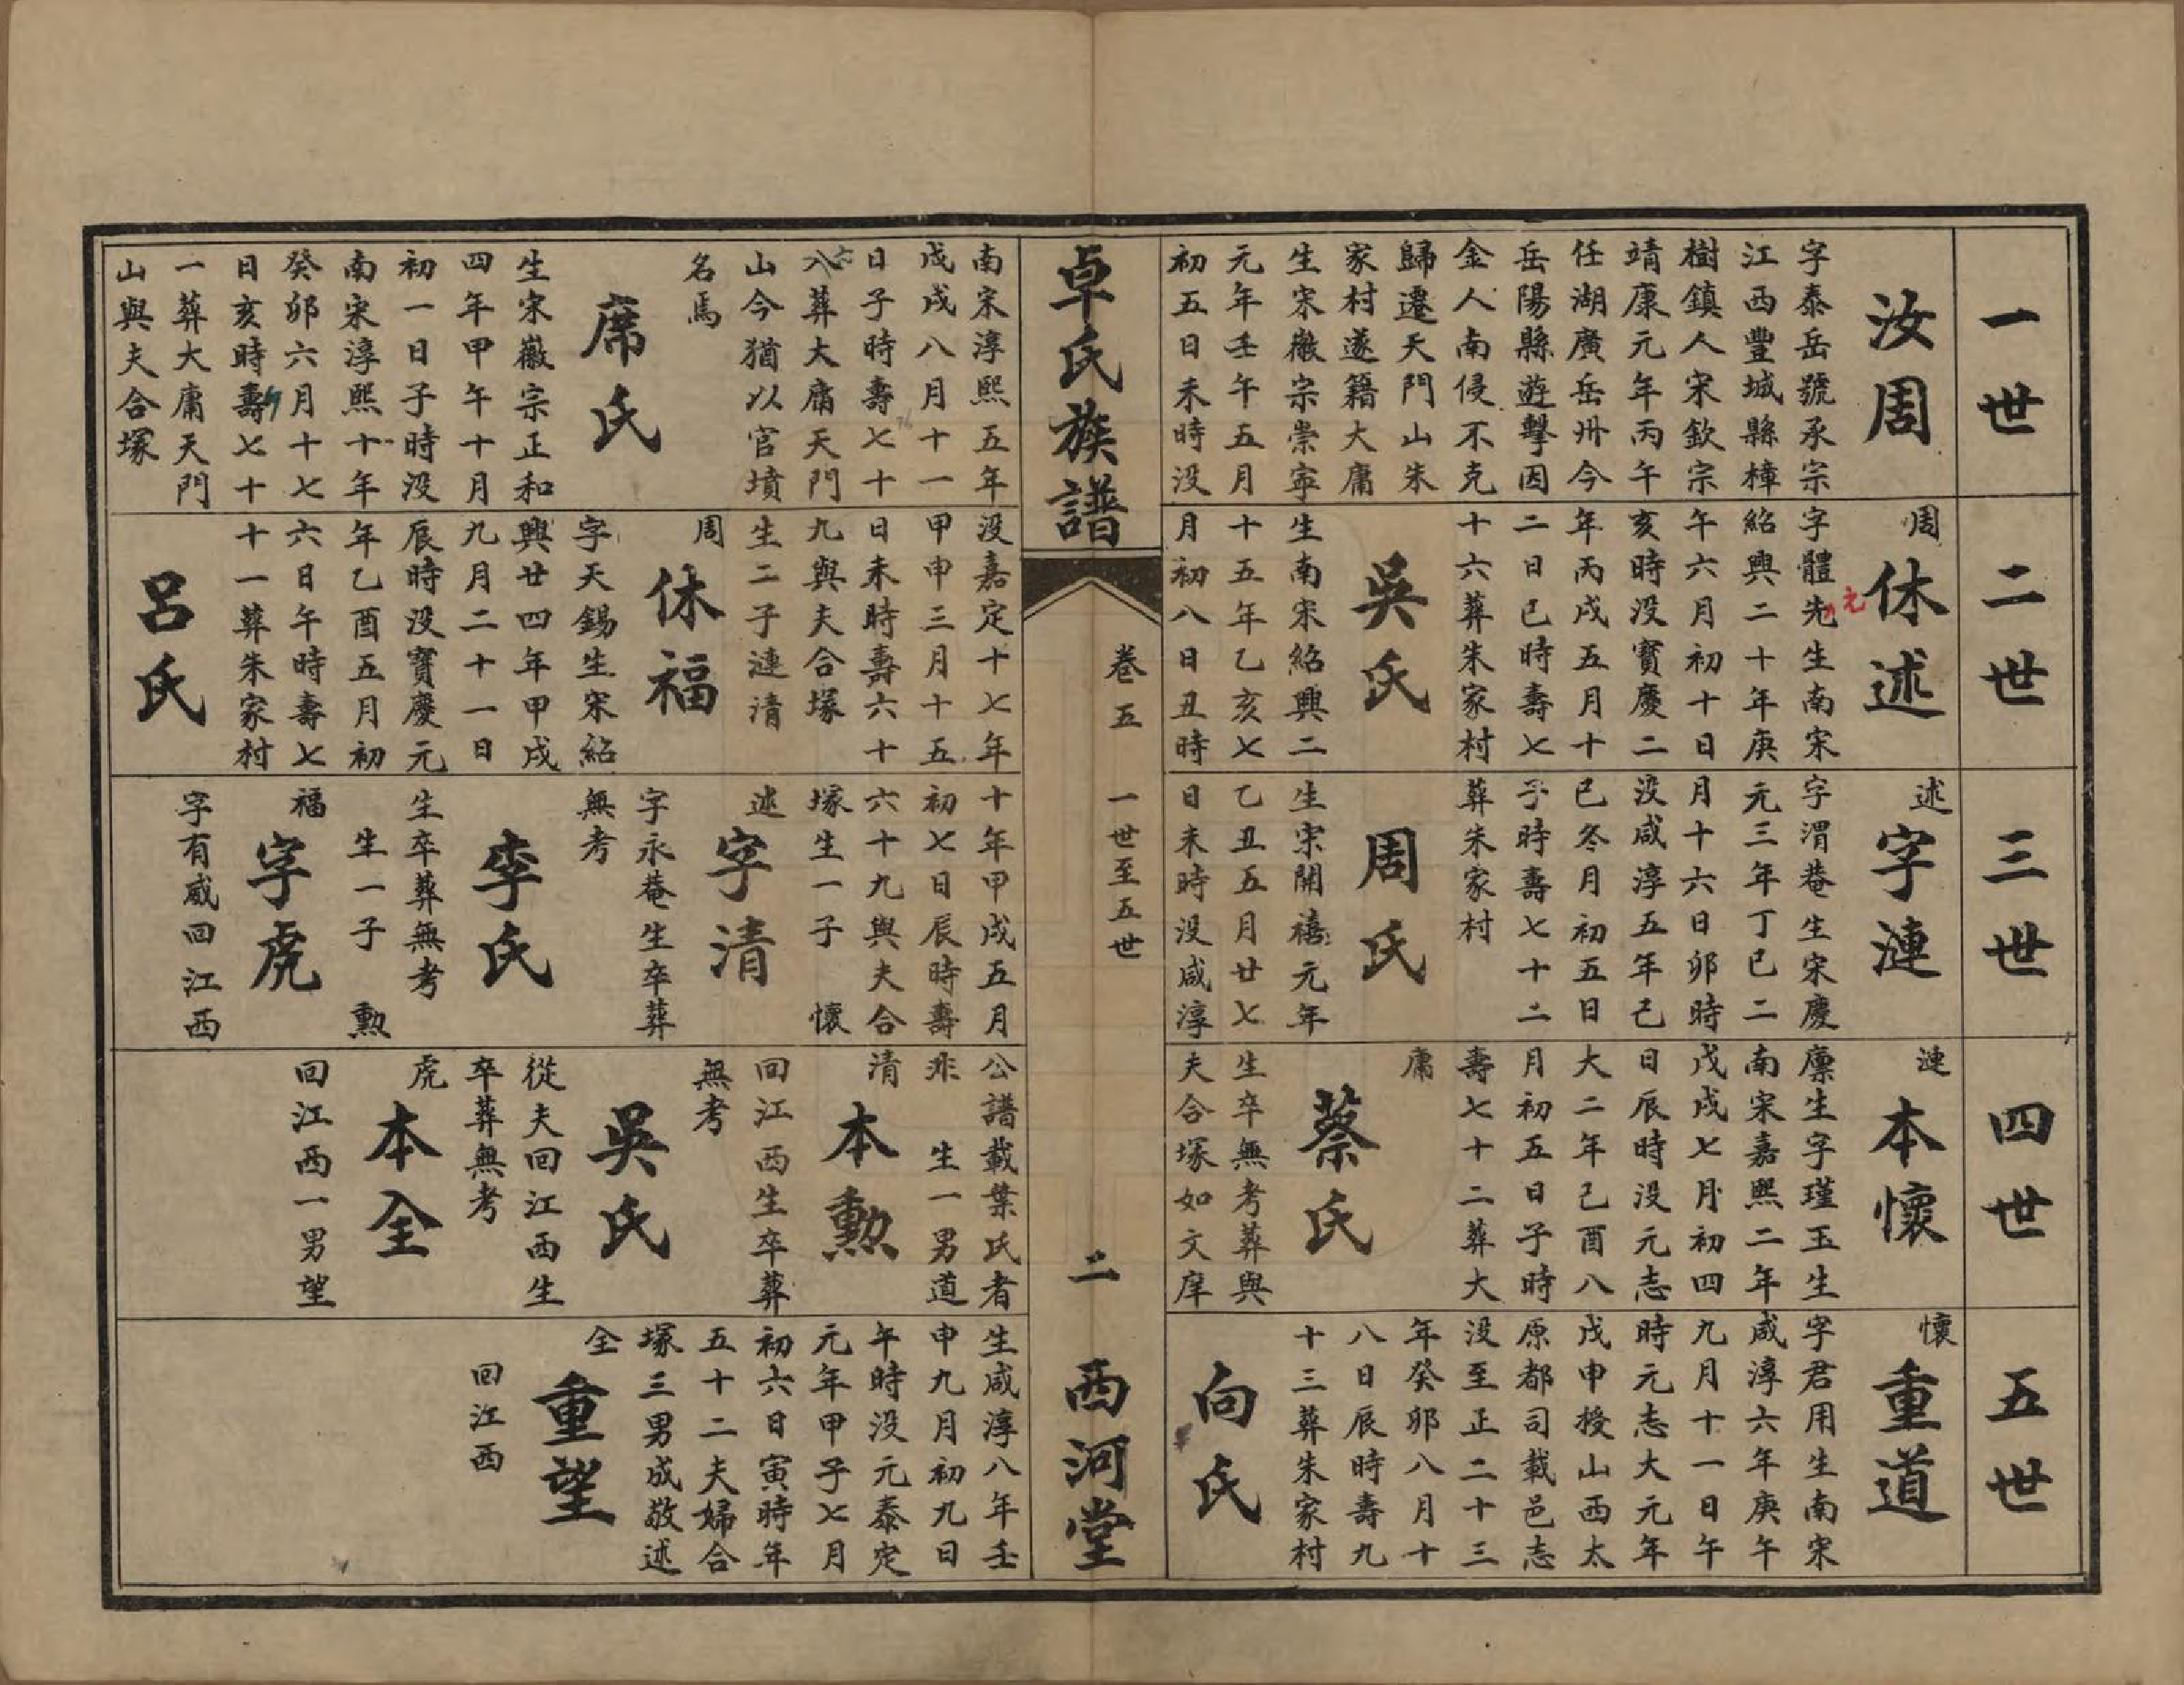 一世
汝周
字泰岳號承宗
江西豐城縣樟
樹鎮人宋欽宗
靖康元年丙午
任湖廣岳州今
岳陽縣遊擊因
金人南侵不克
歸遷天門山朱
家村遂籍大庸
生宋徽宗崇寧
元年壬午五月
初五日未時没
南宋淳熙五年
戊戌八月十一
日子時壽七十
六
八葬大庸天門
山今猶以官墳
名焉
席氏
生宋徽宗正和
四年甲午十月
初一日子時没
南宋淳熙十年
癸卯六月十七
日亥時壽七十
一葬大庸天門
山與夫合塚
二世
周
休述
字體先生南宋
元
紹興二十年庚
午六月初十日
亥時没寳慶二
年丙戌五月十
二日巳時壽七
十六葬朱家村
吳氏
生南宋紹興二
十五年乙亥七
月初八日丑時
没嘉定十七年
甲申三月十五
日未時壽六十
九與夫合塚
生二子漣清
周
休福
字天錫生宋紹
興廿四年甲戌
九月二十一日
辰時没寳慶元
年乙酉五月初
六日午時壽七
十一葬朱家村
呂氏
三世
述
字漣
字渭菴生宋慶
元三年丁巳二
月十六日卯時
没咸淳五年己
巳冬月初五日
子時壽七十二
葬朱家村
周氏
生宋開禧元年
乙丑五月廿七
日未時没咸淳
十年甲戌五月
初七日辰時壽
六十九與夫合
塚生一子 懷
述
字清
字永菴生卒葬
無考
李氏
生卒葬無考
生一子 勲
福
字虎
字有威回江西
四世
漣
本懷
廪生字瑾玉生
南宋嘉熙二年
戊戌七月初四
日辰時没元志
大二年己酉八
月初五日子時
壽七十二葬大
庸
蔡氏
生卒無考葬與
夫合塚如文庠
公譜載葉氏者
非 生一男道
清
本勲
回江西生卒葬
無考
吳氏
從夫回江西生
卒葬無考
虎
本全
回江西一男望
五世
懷
重道
字君用生南宋
咸淳六年庚午
九月十一日午
時元志大元年
戊申授山西太
原都司載邑志
没至正二十三
年癸卯八月十
八日辰時壽九
十三葬朱家村
向氏
生咸淳八年壬
申九月初九日
午時没元泰定
元年甲子七月
初六日寅時年
五十二夫婦合
塚三男成敬述
全
重望
回江西
卓氏族譜
卷五 一世至五世
二
西河堂